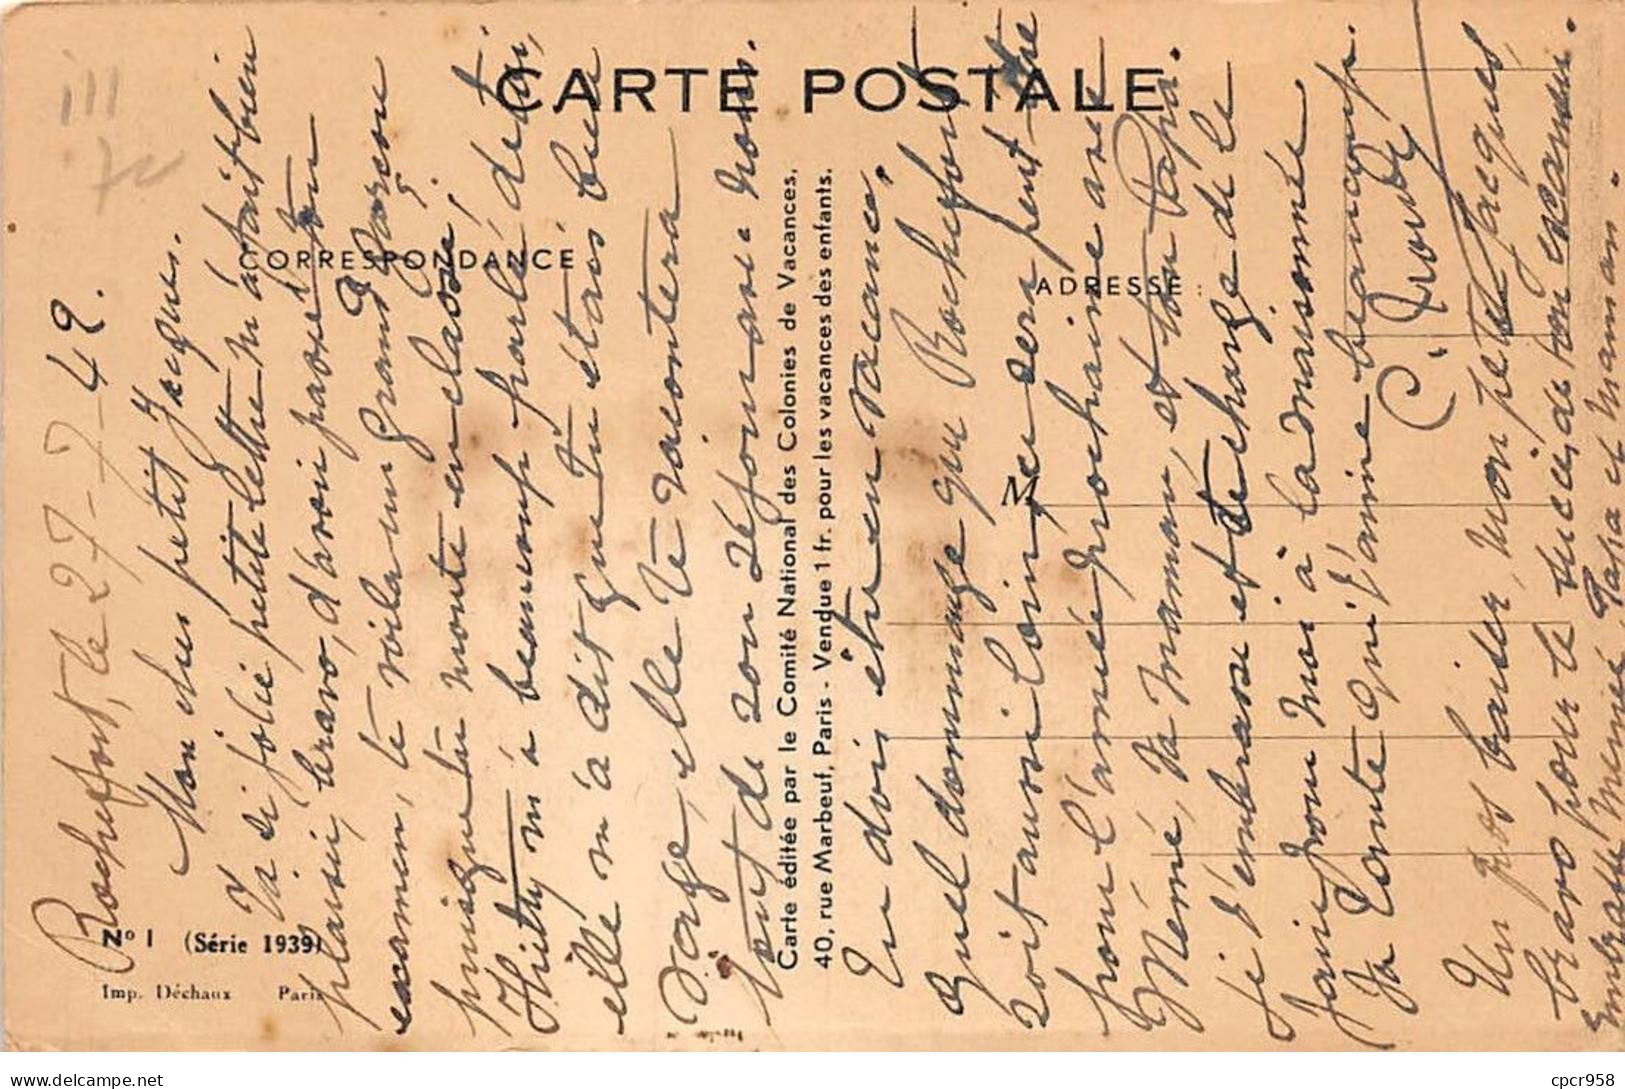 CARTE POSTALE
CORRESPONDANCE
ADRESSE :
M
Nº 1 (Série 1939)
Imp. Déchaux Paris
Carte éditée par le Comité National des Colonies de Vacances,
40, rue Marbeuf, Paris - Vendue 1 fr. pour les vacances des enfants.
Rochefort, le 27-7-42.
Mon cher petit Jacques.
Ta si jolie petite lettre m'a fait bien
plaisir, bravo, d'avoir passé ton
examen, te voilà un grand garçon
puisque tu monte en classe!
Kitty m'a beaucoup parlé de toi,
elle m'a dit que tu étais bien
sage, elle te racontera
tout de son séjour avec nous.
Tu dois être en vacances,
quel dommage que Rochefort
soit aussi loin, ce sera peut-être
pour l'année prochaine avec
Mémé, ta maman, et ton Papa.
Je t'embrasse et te charge de le
faire pour moi à la maisonnée
Ta Tante qui t'aime beaucoup.
Un gros baiser, mon petit Jacques,
bravo pour le succès de ton examen.
Embrasse Mémé, Papa et Maman.
cpcr958